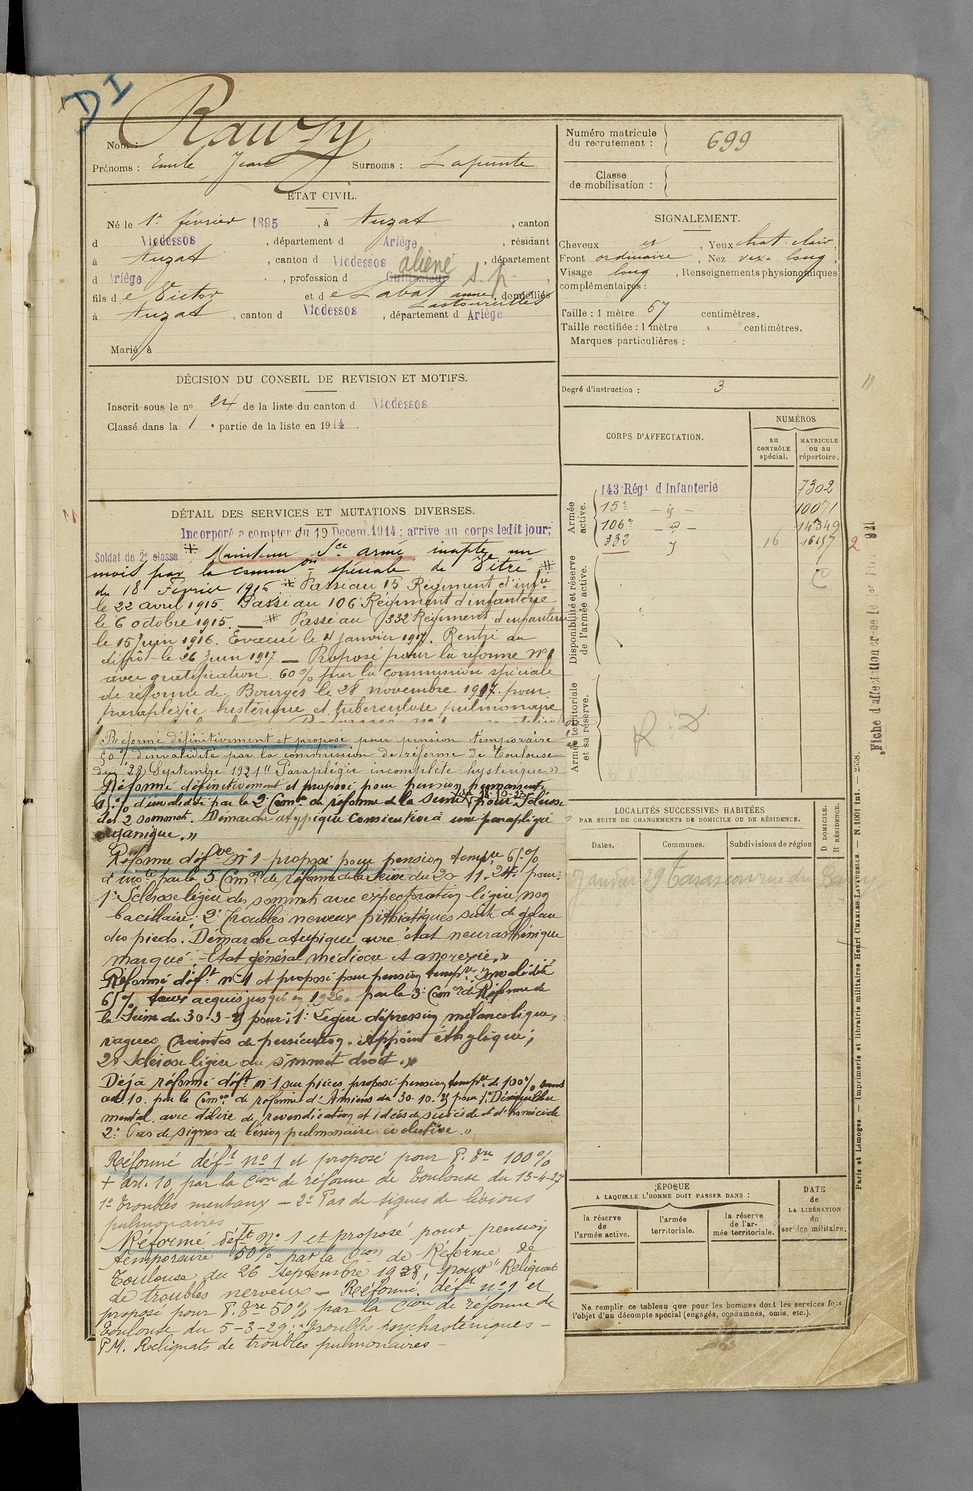 DI
Nom : Rauzy
Prénoms : Emile Jean Surnoms : Lapointe
Numéro matricule du recrutement : 699
Classe de mobilisation :
ÉTAT CIVIL.
Né le 1er février 1895, à Auzat, canton
d Vicdessos, département d Ariège, résidant
à Auzat, canton d Vicdessos, département
d Ariège, profession d aliéné s.p.
fils de Victor et de Labat anne, domiciliés
à Auzat, canton d Vicdessos, département d Ariège
Marié à
SIGNALEMENT.
Cheveux, Yeux chat. clair,
Front ordinaire, Nez long,
Visage long, Renseignements physionomiques
complémentaires :
Taille : 1 mètre 67 centimètres.
Taille rectifiée : 1 mètre centimètres.
Marques particulières :
Degré d'instruction : 3
DÉCISION DU CONSEIL DE REVISION ET MOTIFS.
Inscrit sous le no 24 de la liste du canton d Vicdessos
Classé dans la 1 e partie de la liste en 1914.
CORPS D'AFFECTATION.
NUMÉROS
au CONTRÔLE spécial.
MATRICULE ou au répertoire.
Armée active.
143 Régt d'Infanterie 7302
15e 10071
106e 14349
332 16 16157 2
Disponibilité et réserve de l'armée active.
Armée territoriale et sa réserve.
R. D
DÉTAIL DES SERVICES ET MUTATIONS DIVERSES.
Incorporé à compter du 19 Décem. 1914 ; arrivé au corps ledit jour;
Soldat de 2e classe Maintenu Sce armé inapte un
mois par la common spéciale de Vitré
du 18 Février 1916 Passé au 15 Régiment d'infie
le 22 avril 1915. Passé au 106 Régiment d'infanterie
le 6 octobre 1915. — Passé au 332 Régiment d'infanterie
le 15 Juin 1916. Evacué le 4 janvier 1917. Rentré au
dépôt le 26 Juin 1917 — Proposé pour la réforme No 1
avec gratification 60% par la commission spéciale
de réforme de Bourges le 28 novembre 1917. pour
paraplégie hystérique et tuberculose pulmonaire
Réformé définitivement et proposé pour pension temporaire
50% d'invalidité par la commission de réforme de Toulouse
du 28 Septembre 1921 "Paraplégie incomplète hystérique"
Réformé définitivement et proposé pour pension permanente,
65% d'invalidité par la 2e Comon de réforme de la Seine pour Sclérose
des 2 sommets. Démarche atypique consécutive à une paraplégie
organique."
Réformé défve No 1 proposé pour pension tempre 65%
d'invté par la 3 Comon de réforme de la Seine du 20 11.24. pour:
1o Sclérose légère des sommets avec expectoration légère non
bacillaire. 2o Troubles nerveux pithiatiques suite de gelure
des pieds. Démarche atypique avec état neurasthénique
marqué. Etat général médiocre et anorexie."
Réformé déft no 1 et proposé pour pension tempre Invalidité
65% taux acquis jusqu'en 1926. par la 3e Comon de Réforme de
la Seine du 30-3-25 pour; 1o Légère dépression mélancolique,
vagues craintes de persécution. Appoint éthylique;
2o Sclérose légère du sommet droit."
Déjà réformé déft no 1 sur pièces proposé pension tempre de 100%
art 10. par la Comon de réforme d'Amiens du 30.10.25 pour 1o Déséquilibre
mental avec délire de revendication et idées de suicide et d'homicide
2o Pas de signes de lésion pulmonaire évolutive."
Réformé déft no 1 et proposé pour P. Tre 100%
+ art. 10 par la Cion de réforme de Toulouse du 15-4-27
1o Troubles mentaux — 2o Pas de signes de lésions
pulmonaires
Réformé déft No 1 et proposé, pour pension
temporaire 50% par la Cion de Réforme de
Toulouse du 26 Septembre 1928, pour "Reliquat
de troubles nerveux — Réformé déft no 1 et
proposé pour P. Tre 50% par la Cion de réforme de
Toulouse du 5-3-29: Troubles psychasténiques —
P.M. Reliquats de troubles pulmonaires —
LOCALITÉS SUCCESSIVES HABITÉES
PAR SUITE DE CHANGEMENTS DE DOMICILE OU DE RÉSIDENCE.
Dates.
Communes.
Subdivisions de région
D. DOMICILE. R. RÉSIDENCE.
Janvier 29 Tarascon rue du
ÉPOQUE
A LAQUELLE L'HOMME DOIT PASSER DANS :
la réserve de l'armée active.
l'armée territoriale.
la réserve de l'armée territoriale.
DATE de LA LIBÉRATION du service militaire.
Ne remplir ce tableau que pour les hommes dont les services font
l'objet d'un décompte spécial (engagés, condamnés, omis, etc.).
Fiche d'affectation créée le 1er
Paris et Limoges. — Imprimerie et librairie militaires Henri CHARLES-LAVAUZELLE. — N. 1001 int. — 2558.